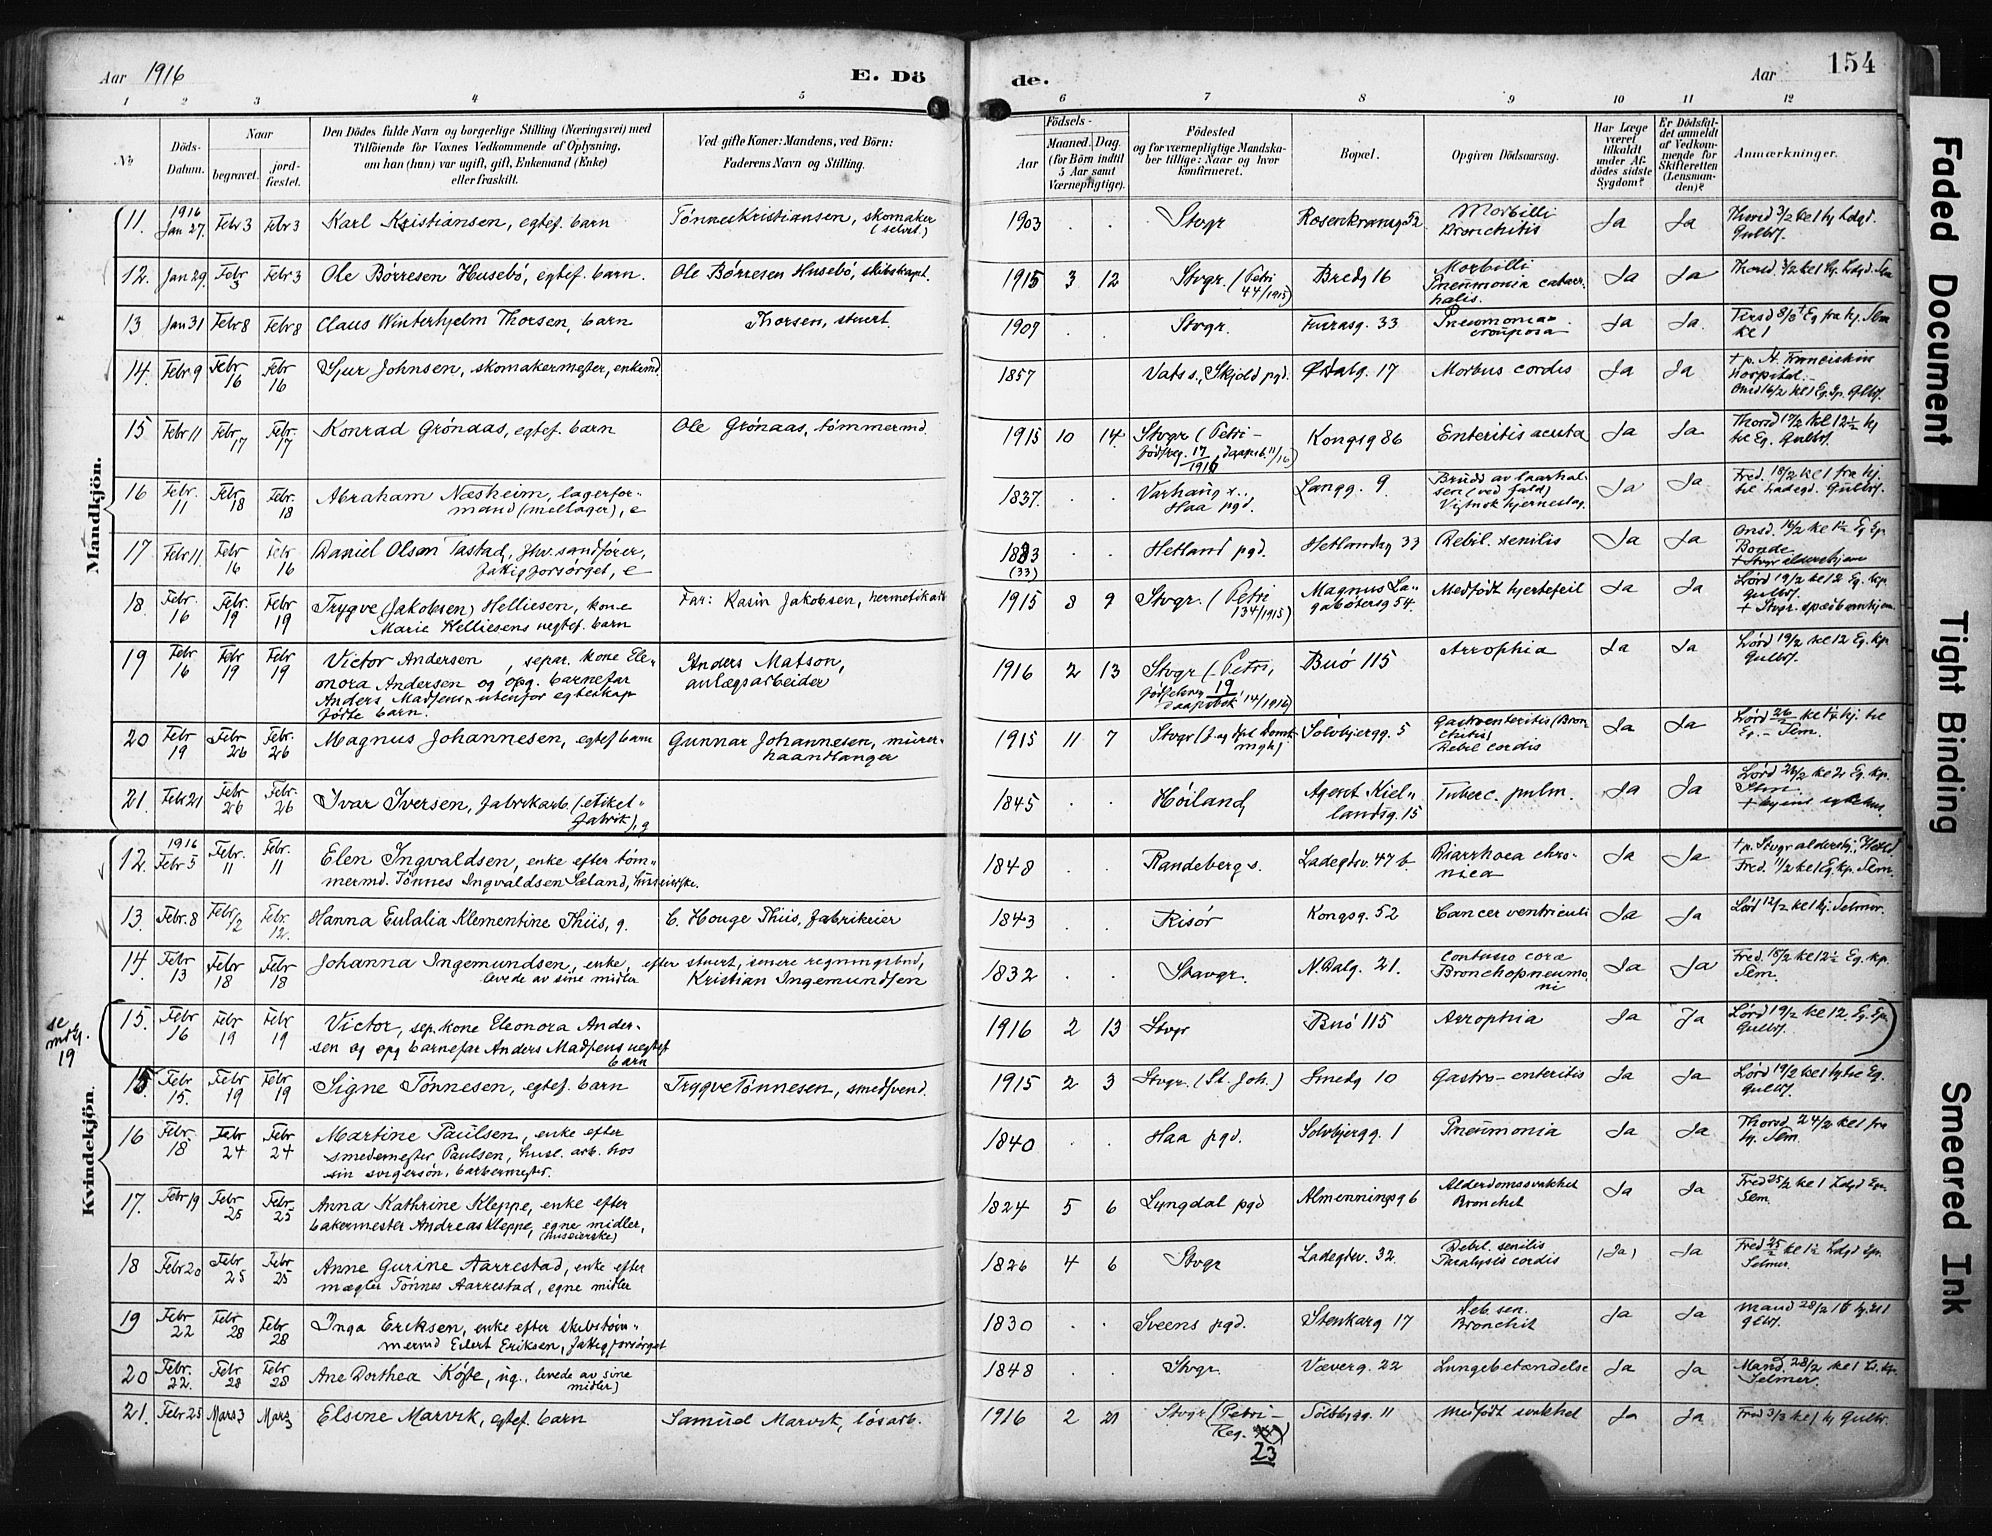 Aar 1916
E. Dö
de.
Aar
154
1 2 3 4 5 6 7 8 9 10 11 12
No
Döds-Datum.
Naar
begravet.
jord-fæstet.
Den Dödes fulde Navn og borgerlige Stilling (Næringsvei) med
Tilföiende for Voxnes Vedkommende af Oplysning,
om han (hun) var ugift, gift, Enkemand (Enke)
eller fraskilt.
Ved gifte Koner: Mandens, ved Börn:
Faderens Navn og Stilling.
Födsels-
Aar
Maaned. Dag.
(for Börn indtil
5 Aar samt
Værnepligtige).
Födested
og for værnepligtige Mandska-
ber tillige: Naar og hvor
konfirmeret.
Bopæl.
Opgiven Dödsaarsag.
Har Læge
været
tilkaldt
under Af-
dödes sidste
Sygdom?
Er Dödsfal-
det anmeldt
af Vedkom-
mende for
Skifteretten
(Lensman-
den)?
Anmærkninger.
Mandkjön.
11. 1916 Jan 27. Febr 3 Febr 3 Karl Kristiansen, egtef. barn Tønnes Kristiansen, skomaker (selvst.) 1903 . . Stvgr Rosenkransg 52 Morbilli Bronchitis Ja Ja
12. Jan 29. Febr 3 Febr 3 Ole Børresen Husebö, egtef. barn. Ole Börresen Husebö, skibskapt. 1915 3 12 Stvgr. (Petri 44/1915) Bredg 16 Morbilli Pneumonia catarrhalis. Ja Ja
13 Jan 31 Febr 8 Febr 8 Claus Winterhjelm Thorsen, barn Thorsen, stuert. 1907 . . Stvgr. Furrasg. 33 Pneumonia crouposa Ja Ja
14. Febr 9 Febr 16 Febr 16 Sjur Johnsen, skomakermester, enkemd 1857 Vats s., Skjold pgd. Ø Dalg. 17 Morbus cordis Ja Ja
15 Febr 11 Febr 17 Febr. 17 Konrad Grönaas, egtef. barn Ole Grönaas, tömmermd. 1915 10 14. Stvgr (Petri - födsreg. 17/1916, daapsb. 11/16) Kongsg 86 Enteritis acuta Ja Ja Thorsd 17/2 kl 12½
16 Febr. 11 Febr 18 Febr 18 Abraham Næsheim, lagerfor-
mand (mellager), e 1837. . . Varhaug s., Haa pgd. Langg. 9. Brudd av laarhal-
sen (ved fald) Ja Ja Fred. 18/2 kl 1 fra hj
17 Febr 11. Febr 16 Febr 16 Daniel Olsen Tastad, fhv. sandfører,
fattigforsørget, e 1833 (33) . . Hetland pgd. Hetlandsg 33 Debil. senilis Ja Ja
18. Febr. 16 Febr. 19 Febr 19 Trygve (Jakobsen) Helliesen, kone
Marie Helliesens uegtef. barn Far: Karin Jakobsen, hermetikarb 1915 8 9 Stvgr. (Petri 134/1915) Magnus La-
gabötersg 54. Medfödt hjertefeil Ja Ja Lörd 19/2 kl 12 Eg. kp.
19 Febr 16 Febr 19 Febr. 19 Victor Andersen, separ. kone Ele-
onora Andersen og opg. barnefar
Anders Madsens utenfor egteskap
födte barn. Anders Matson,
anlægsarbeider 1916 2 13 Stvgr (Petri, födselsreg 19 daapsbok 14/1916) Buö 115 Atrophia Ja Ja Lörd 19/2 kl 12 Eg. kp. Gulbr.
20 Febr 19 Febr 26 Febr. 26 Magnus Johannesen, egtef barn Gunnar Johannesen, murer-
haandlanger 1915 11 7 Sölvbjergg. 5 Gastroenteritis (Bron-
chitis) Debil cordis Ja Ja
21. Febr 21 Febr 26 Febr. 26 Ivar Iversen, fabrikarb. (etiket-
fabrik), g 1845 . . Höiland Agent Kiel-
landsg. 15 Tuberc. pulm. Ja Ja
Kvindekjön.
12. 1916 Febr 5 Febr. 11 Febr. 11 Elen Ingvaldsen, enke efter töm-
mermd. Tönnes Ingvaldsen Sæland, huseierske. 1848 . . Randeberg s. Ladegdsv. 47 b. Diarrhoea chro-
nica Ja Ja
13. Febr. 8 Febr 12 Febr. 12. Hanna Eulalia Klementine Thiis, g. C. Houge Thiis, fabrikeier 1843 . . Risör Kongsg. 52 Cancer ventriculi Ja Ja Lörd 12/2 kl 1 hj. Selmer.
14. Febr 13 Febr 18 Febr 18 Johanna Ingemundsen, enke efter stuert, senere regningsbud,
levede av sine midler Kristian Ingemundsen 1832 . . Stavgr. N. Dalg. 21. Contusio coxæ Bronchopneumo-
ni Ja Ja Fred. 18/2 kl 12½ Eg. kp. Sem.
se
mdkj.
19
(15. Febr 16 Febr 19 Febr 19 Victor, sep. kone Eleonora Ander-
sen og opg barnefar Anders Madsens uegtef
barn 1916 2 13 Stvgr Buö 115 Atrophia Ja Ja Lörd 19/2 kl 12. Eg. kp. Gulbr.)
15. Febr 15. Febr 19 Febr 19 Signe Tönnesen, egtef. barn Trygve Tönnesen, smedsvend. 1915 2 3 Stvgr. (St. Joh.) Smedg 10 Gastro-enteritis Ja Ja
16 Febr. 18 Febr 24 Febr. 24 Martine Paulsen, enke efter
smedemester Paulsen, husl. arb. hos
sin svigersön, barbermester. 1840 . . Haa pgd. Sölvbjergg. 1 Pneumonia Ja Ja Thorsd 24/2 kl 1 fra hj. Sem.
17. Febr 19 Febr 25 Febr. 25 Anna Kathrine Kleppe, enke efter
bakermester Andreas Kleppe, egne midler,
(huseierske) 1824 5 6 Lyngdal pgd Almenningsg 6 Alderdomssvakhet Bronchit Ja Ja
18 Febr 20 Febr 25 Febr 25 Anne Gurine Aarrestad, enke efter
mægler Tönnes Aarrestad, egne midler 1826 4 6 Stvgr Ladegdsv. 32. Debil. senilis Paralysis cordis (Ja) Ja
19 Febr. 22 Febr. 28 Febr 28 Inga Eriksen, enke efter skibstöm-
mermd Eilert Eriksen, fattigforsörget 1830 . . Sveens pgd. Stenkarg 17 Deb. sen. Bronchit Ja Ja
20 Febr. 22. Febr 28 Febr 28 Ane Dorthea Köste, ug., levede av sine
midler) 1848 . . Stvgr. Væverg. 22 Lungebetændelse Ja Ja Mand. 28/2 kl 1 Selmer.
21. Febr 25 Mars 3 Mars 3 Elsine Marvik, egtef. barn Samuel Marvik, lösarb. 1916 2 21 Stvgr (Petri - Reg. 23) Sölvbgg. 11 Medfödt svakhet Ja Ja Fred 3/3 kl 1 hj Gulbr.
Faded Document
Tight Binding
Smeared Ink